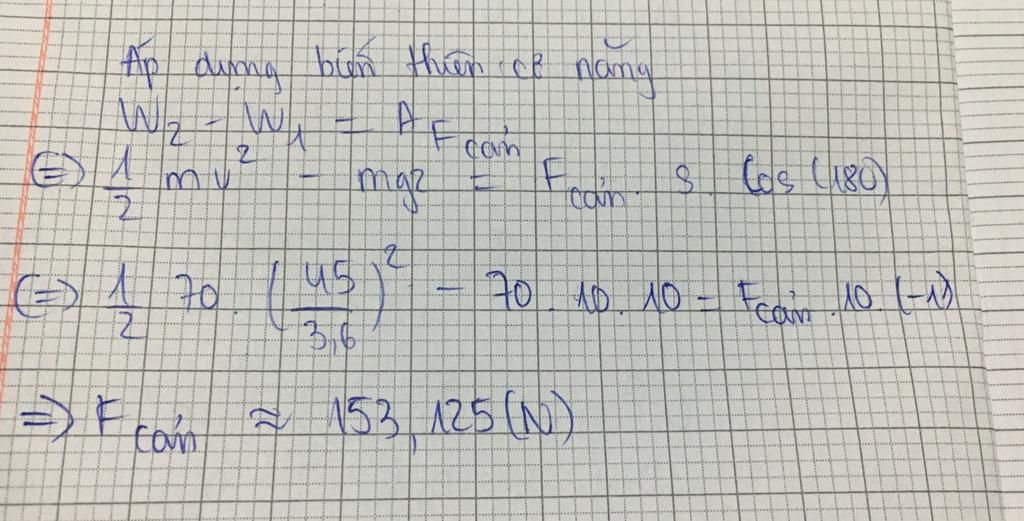 Áp dụng biến thiên cơ năng
W₂ - W₁ = A F cản
(=) 1/2 mv² - mgz = F cản . s . cos (180)
(=) 1/2 70 . (45/3,6)² - 70 . 10 . 10 = F cản . 10 . (-1)
=> F cản ≈ 153,125 (N)